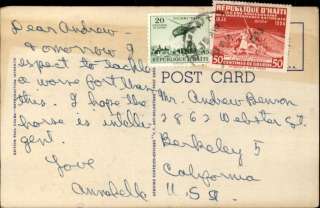 Dear Andrew-
tomorrow I
expect to tackle
a worse fort than
this. I hope the
horse is intelli
gent.
Love
Annabelle
20
REPUBLIQUE D'HAITI
REPUBLIQUE D'HAITI
50
50
POST CARD
Mr. Andrew Benson
2862 Webster St
Berkeley 5
California
USA